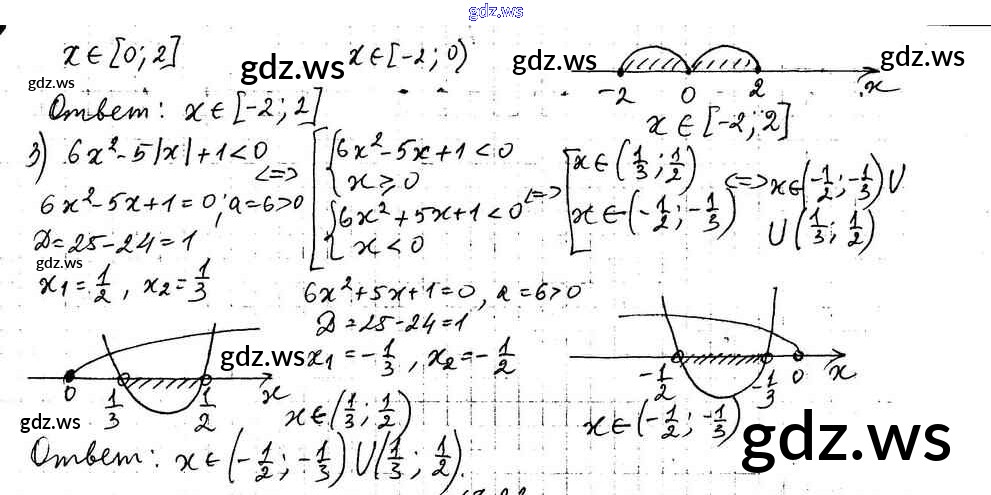 gdz.ws
x∈[0;2]
x∈[-2;0)
gdz.ws
gdz.ws
gdz.ws
gdz.ws
-2 0 2 x
Ответ: x∈[-2;2]
x∈[-2;2]
3) 6x²-5|x|+1<0 <=> [ { 6x²-5x+1<0
x⩾0
{ 6x²+5x+1<0
x<0
<=> [ x∈(1/3;1/2)
x∈(-1/2;-1/3)
<=> x∈(-1/2;-1/3)∪
∪(1/3;1/2)
6x²-5x+1=0; a=6>0
D=25-24=1
gdz.ws
x₁=1/2, x₂=1/3
6x²+5x+1=0, a=6>0
D=25-24=1
x₁=-1/3, x₂=-1/2
gdz.ws
0 1/3 1/2 x
-1/2 -1/3 0 x
x∈(1/3;1/2)
x∈(-1/2;-1/3)
gdz.ws
gdz.ws
gdz.ws
Ответ: x∈(-1/2;-1/3)∪(1/3;1/2).